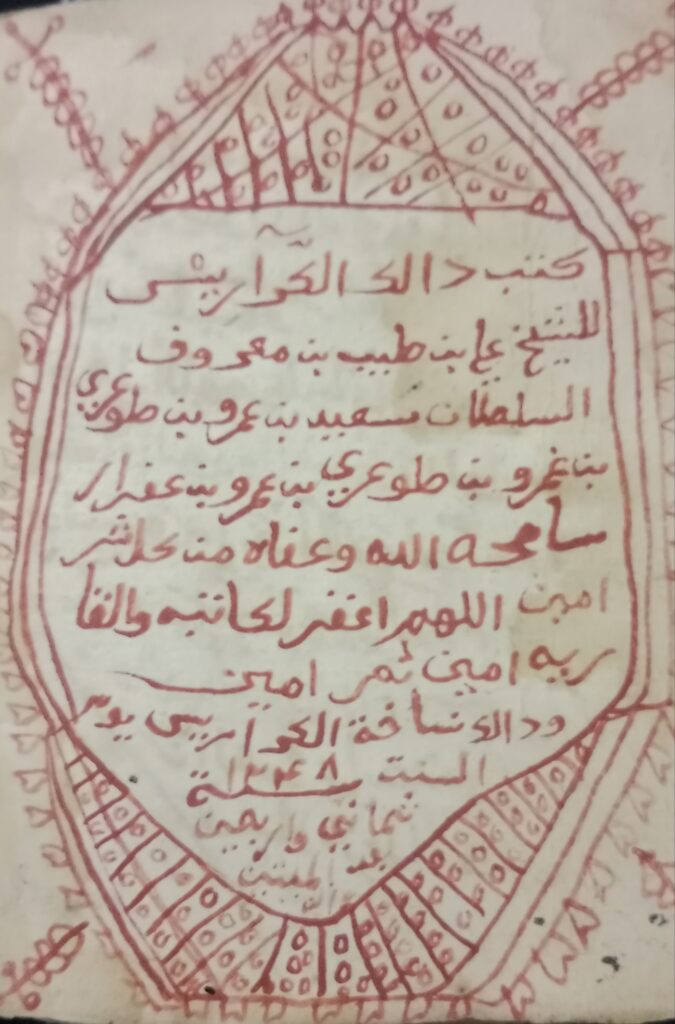 كتب دالك الكواريس
للشيخ علي بن طبيب بن معروف
السلطان سعيد بن عمرو بن طوعري
بن عمرو بن طوعري بن عمرو بن عفرار
سامحه الله وعفاه من كل شر
امين اللهم اغفر لكاتبه والقا
ريه امين ثمر امين
ودالك نساخة الكواريس يوم
السبت ١٣٤٨ سنة
ثماني واربعين
بعد الميتين